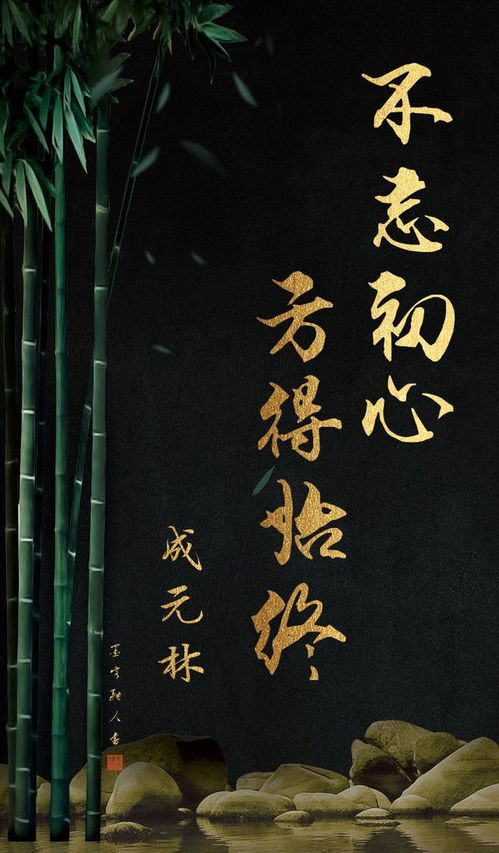 不忘初心
方得始终
成元林